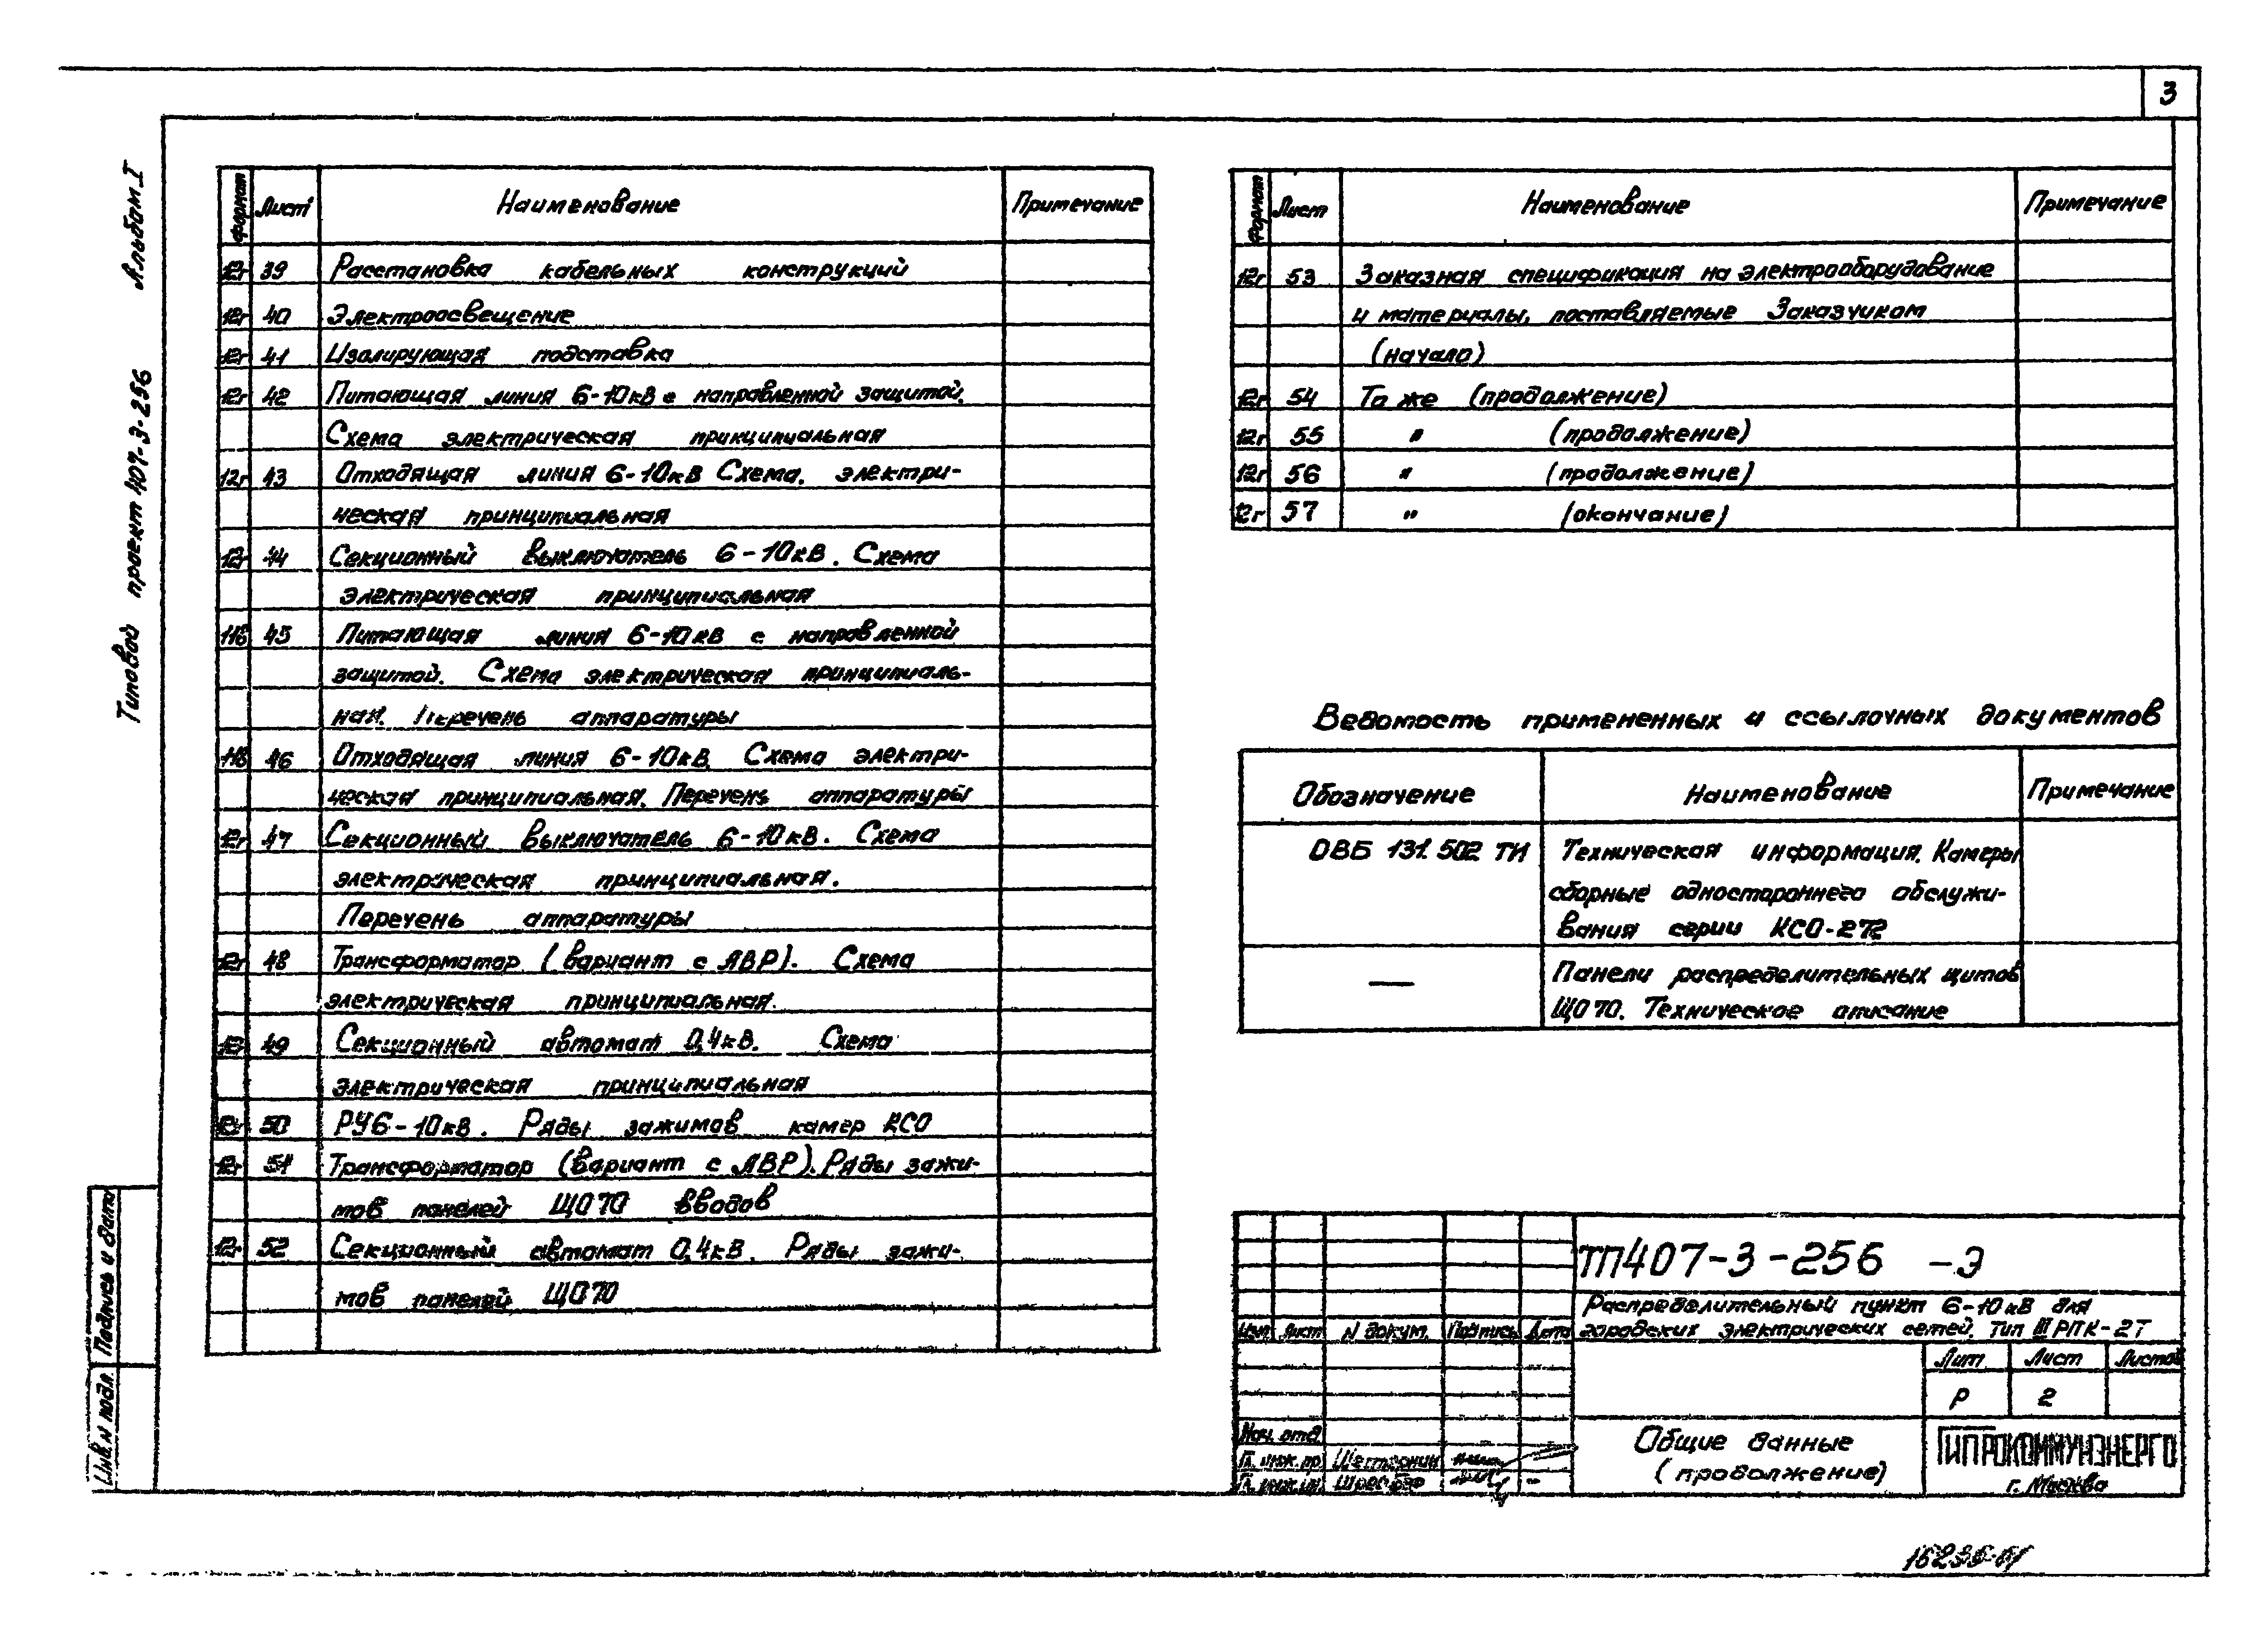 3
Альбом I
Типовой проект 407-3-256
Формат Лист Наименование Примечание
12г 39 Расстановка кабельных конструкций
12г 40 Электроосвещение
12г 41 Изолирующая подставка
12г 42 Питающая линия 6-10кВ с направленной защитой.
Схема электрическая принципиальная
12г 43 Отходящая линия 6-10кВ Схема. электри-
ческая принципиальная
12г 44 Секционный выключатель 6-10кВ. Схема
электрическая принципиальная
11в 45 Питающая линия 6-10кВ с направленной
защитой. Схема электрическая принципиаль-
ная. Перечень аппаратуры
11в 46 Отходящая линия 6-10кВ. Схема электри-
ческая принципиальная. Перечень аппаратуры
12г 47 Секционный выключатель 6-10кВ. Схема
электрическая принципиальная.
Перечень аппаратуры
12г 48 Трансформатор (вариант с АВР). Схема
электрическая принципиальная.
49 Секционный автомат 0,4кВ. Схема
электрическая принципиальная
12г 50 РУ6-10кВ. Ряды зажимов камер КСО
12г 51 Трансформатор (вариант с АВР). Ряды зажи-
мов панелей ЩО70 вводов
12г 52 Секционный автомат 0,4кВ. Ряды зажи-
мов панелей ЩО70
Формат Лист Наименование Примечание
12г 53 Заказная спецификация на электрооборудование
и материалы, поставляемые Заказчиком
(начало)
12г 54 То же (продолжение)
12г 55 " (продолжение)
12г 56 " (продолжение)
12г 57 " (окончание)
Ведомость примененных и ссылочных документов
Обозначение Наименование Примечание
ОВБ 131.502 ТИ Техническая информация. Камеры
сборные одностороннего обслужи-
вания серии КСО-272
— Панели распределительных щитов
ЩО70. Техническое описание
ТП407-3-256 -Э
Распределительный пункт 6-10кВ для
городских электрических сетей. Тип III РПК-2Т
Изм. Лист N докум. Подпись Дата
Лит Лист Листов
Р 2
Нач. отд.
Гл. инж. пр.
Гл. инж. ин.
Общие данные
(продолжение)
ГИПРОКОММУНЭНЕРГО
г. Москва
Подпись и дата
Инв. N подл.